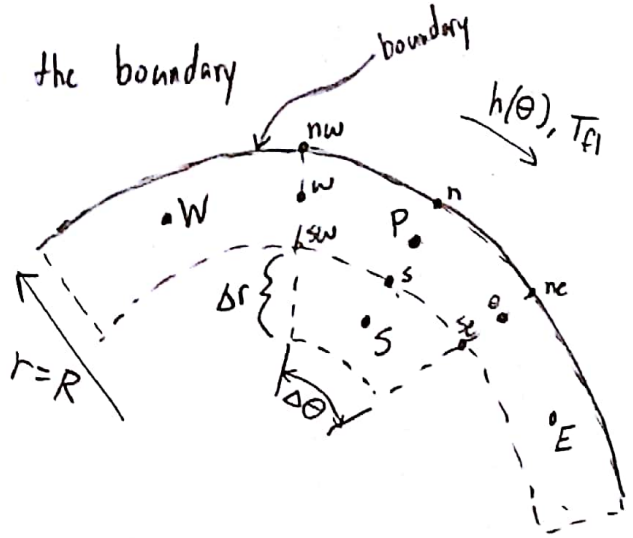 the boundary
boundary
h(θ), T_fl
nw
w
W
n
P
sw
Δr
s
S
ne
e
se
r=R
Δθ
E